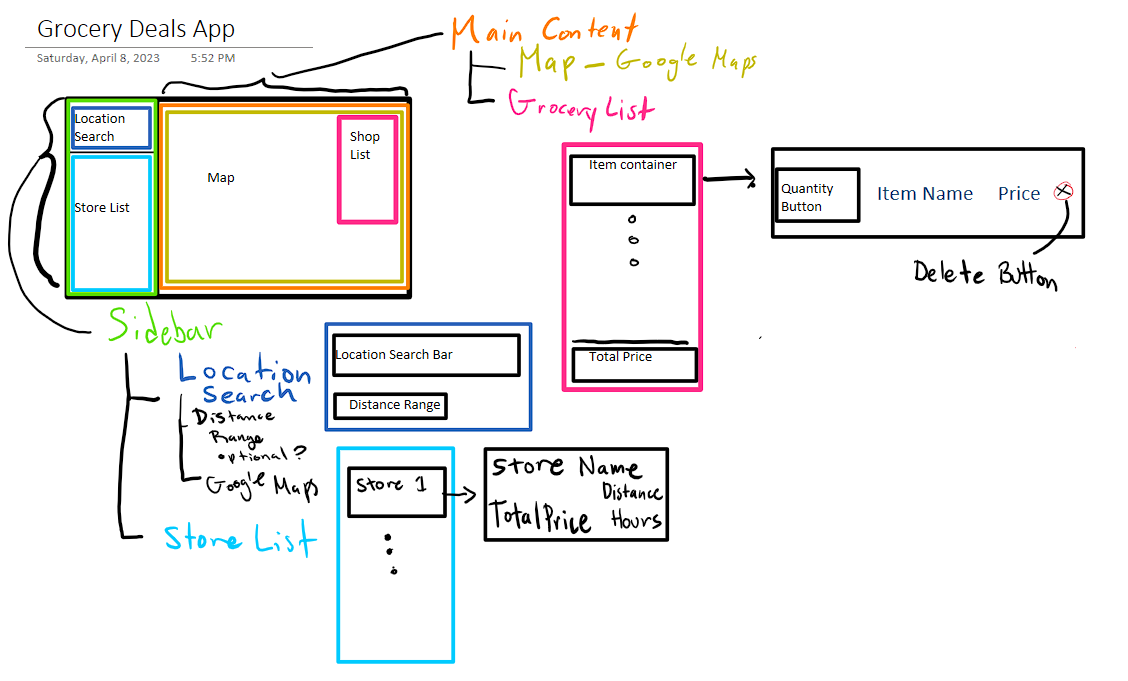 Grocery Deals App
Saturday, April 8, 2023 5:52 PM
Main Content
Map - Google Maps
Grocery List
Location
Search
Store List
Map
Shop
List
Item container
Total Price
Quantity
Button
Item Name Price
Delete Button
Sidebar
Location
Search
Distance
Range
optional?
Google Maps
Store List
Location Search Bar
Distance Range
Store 1
Store Name
Distance
Total Price Hours